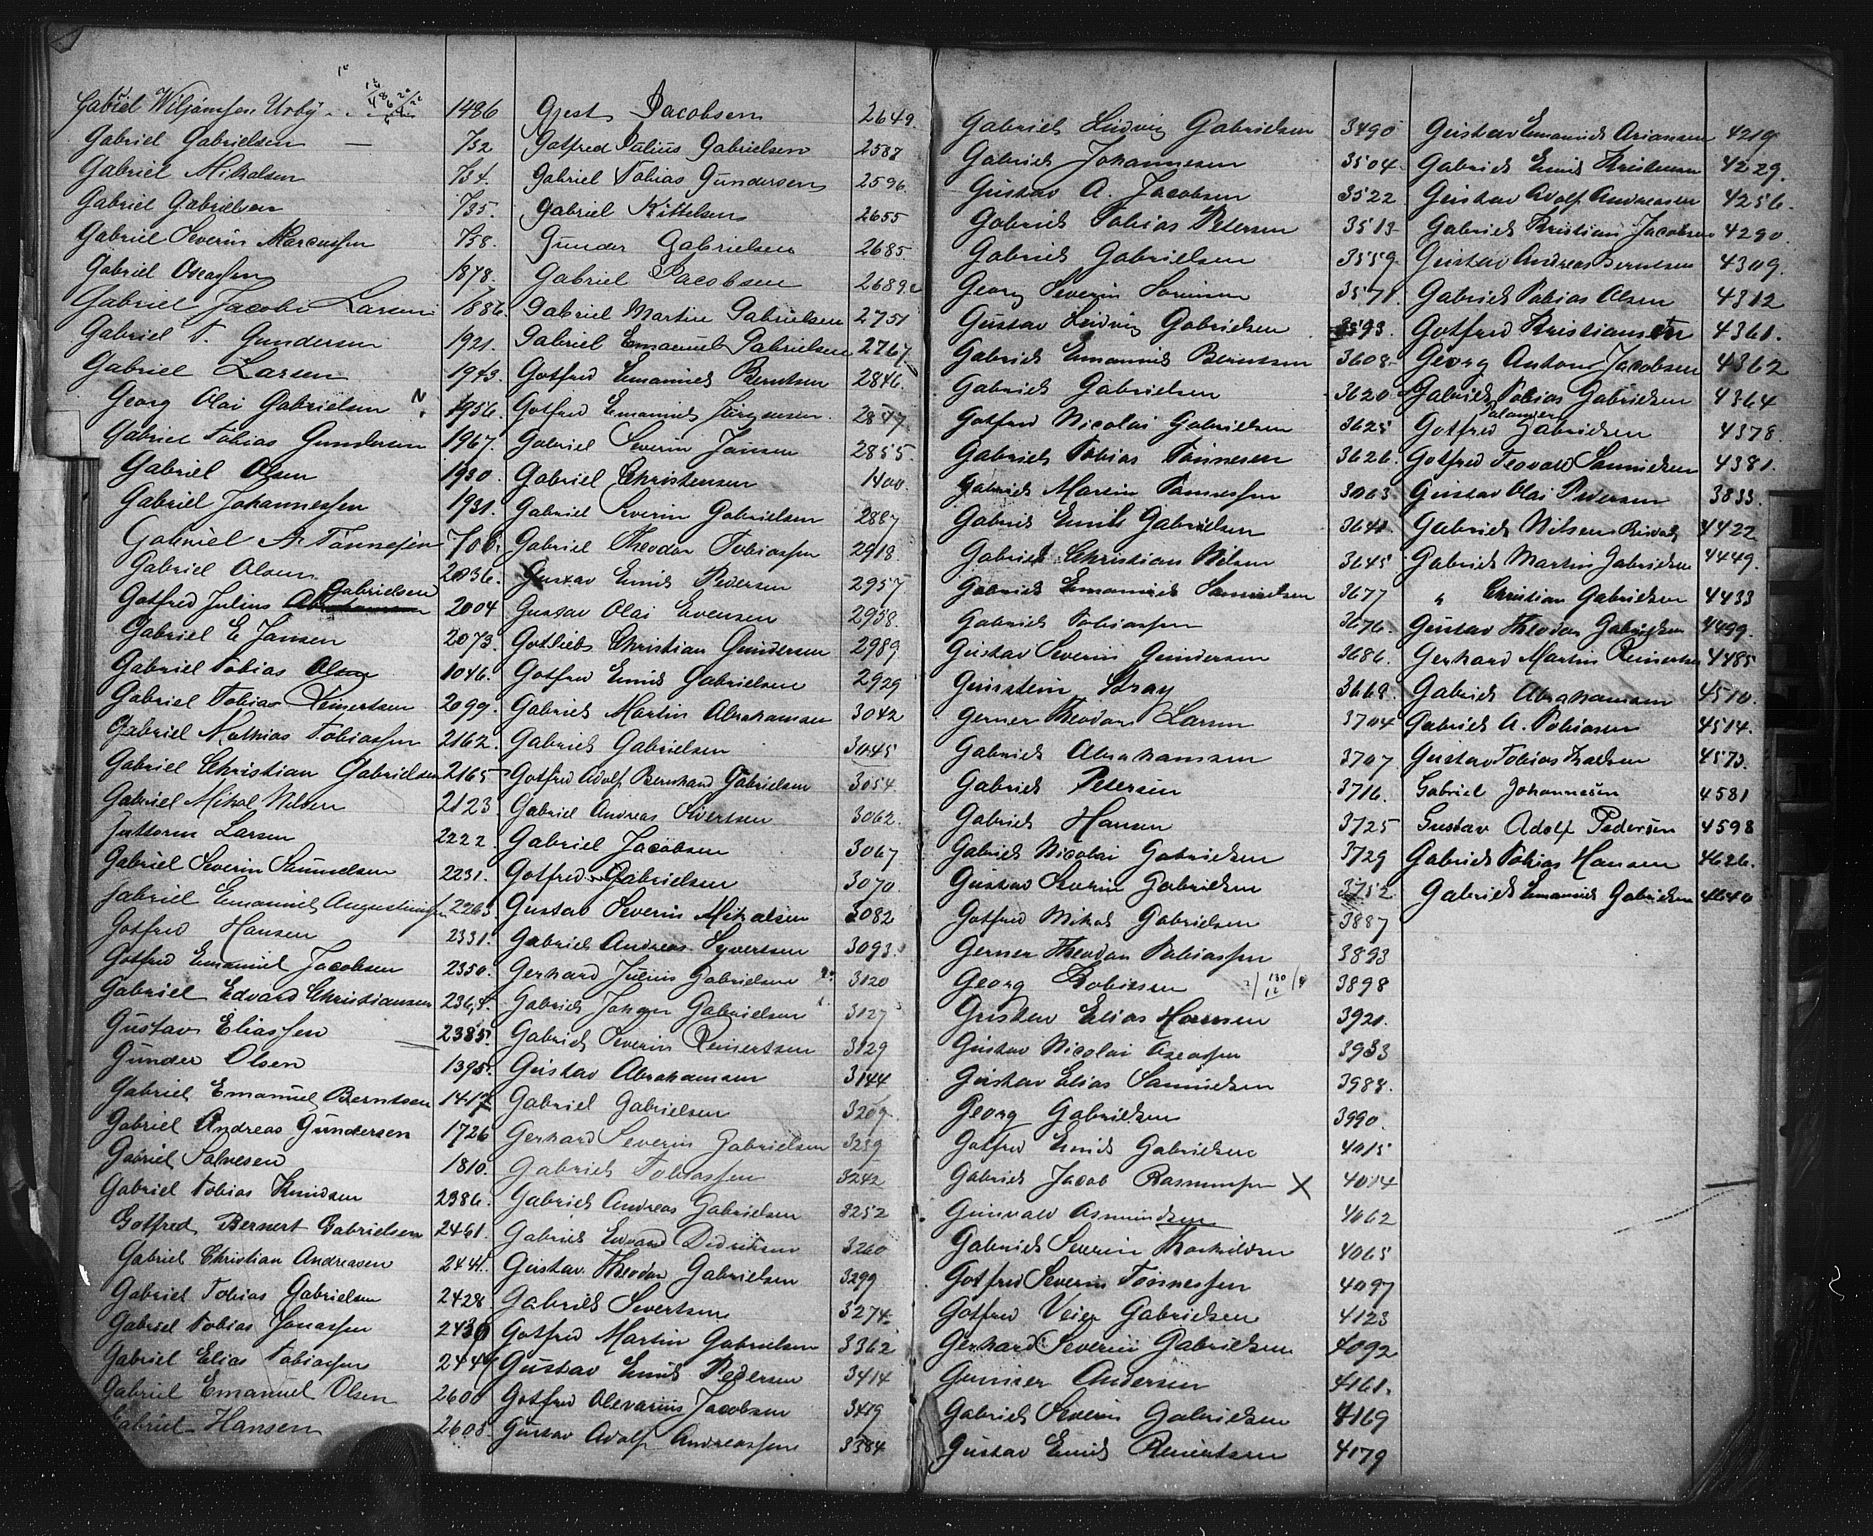 Gabriel Wiljamsen Urby 1486
Gabriel Gabrielsen — 732
Gabriel Mikalsen 734.
Gabriel Gabrielsen 735.
Gabriel Severin Marcussen 738.
Gabriel Oseassen 1878.
Gabriel Jacob Larsen 1886.
Gabriel T. Gundersen 1921.
Gabriel Larsen 1943.
Georg Olai Gabrielsen N. 1956.
Gabriel Tobias Gundersen 1967.
Gabriel Olsen 1930.
Gabriel Johannessen 1931.
Gabriel A. Tønnesen 706.
Gabriel Olsen 2036.
Gotfred Julius Gabrielsen 2004
Gabriel E Jansen 2073.
Gabriel Tobias Olsen 1046.
Gabriel Tobias Reinertsen 2099.
Gabriel Mathias Tobiassen 2162.
Gabriel Christian Gabrielsen 2165
Gabriel Mikal Nilsen 2123
Guttorm Larsen 2222
Gabriel Severin Samuelsen 2231.
Gabriel Emanuel Augustinussen 2263
Gotfred Hansen 2331.
Gotfred Emanuel Jacobsen 2350.
Gabriel Edvard Christiansen 2364.
Gustav Eliassen 2385.
Gunder Olsen 1395.
Gabriel Emanuel Berntsen 1417
Gabriel Andreas Gundersen 1726
Gabriel Salvesen 1810.
Gabriel Tobias Knudsen 2386.
Gotfred Bernert Gabrielsen 2461.
Gabriel Christian Andreasen 2441.
Gabriel Tobias Gabrielsen 2428
Gabriel Tobias Jonassen 2430
Gabriel Elias Tobiassen 2444
Gabriel Emanuel Olsen 2600
Gabriel Hansen 2608.
Gjest Jacobsen 2649.
Gotfred Julius Gabrielsen 2587
Gabriel Tobias Gundersen 2596.
Gabriel Kittelsen 2655
Gunder Gabrielsen 2685.
Gabriel Jacobsen 2689.
Gabriel Martin Gabrielsen 2751
Gabriel Emanuel Gabrielsen 2767.
Gotfred Emanuel Berntsen 2846.
Gotfred Emanuel Jørgensen 2847.
Gabriel Severin Jansen 2855.
Gabriel Christensen 1400.
Gabriel Severin Gabrielsen 2887
Gabriel Theodor Tobiassen 2918.
Gustav Emil Pedersen 2957
Gustav Olai Evensen 2958.
Gotlieb Christian Gundersen 2989
Gotfred Emil Gabrielsen 2929
Gabriel Martin Abrahamsen 3042
Gabriel Gabrielsen 3045
Gotfred Adolf Bernhard Gabrielsen 3054
Gabriel Andreas Sivertsen 3062.
Gabriel Jacobsen 3067
Gotfred Gabrielsen 3070.
Gustav Severin Mikalsen 3082
Gabriel Andreas Syvertsen 3093.
Gerhard Julius Gabrielsen 3120
Gabriel Johan Gabrielsen 3127
Gabriel Severin Reinertsen 3129
Gustav Abrahamsen 3144
Gabriel Gabrielsen 3207.
Gerhard Severin Gabrielsen 3239
Gabriel Tobiassen 3242
Gabriel Andreas Gabrielsen 3252
Gabriel Edvard Didriksen 3260
Gustav Theodor Gabrielsen 3299
Gabriel Severtsen 3274
Gotfred Martin Gabrielsen 3362
Gustav Emil Pedersen 3414
Gotfred Olevarius Jacobsen 3479
Gustav Adolf Andreassen 3384
Gabriel Ludvig Gabrielsen 3490
Gabriel Johannesen 3504
Gustav A. Jacobsen 3522
Gabriel Tobias Petersen 3513
Gabriel Gabrielsen 3559
Georg Severin 3571
Gustav Ludvig Gabrielsen 3593.
Gabriel Emanuel Berntsen 3608.
Gabriel Gabrielsen 3620
Gotfred Nicolai Gabrielsen 3625
Gabriel Tobias Tønnesen 3626.
Gabriel Martin Tønnessen 3003
Gabriel Emil Gabrielsen 3641
Gabriel Christian Nilsen 3645
Gabriel Emanuel Samuelsen 3677
Gabriel Tobiassen 3676.
Gustav Severin Gundersen 3686.
Gunstein Stray 3668.
Gerner Theodor Larsen 3704
Gabriel Abrahamsen 3707
Gabriel Petersen 3716.
Gabriel Hansen 3725
Gabriel Nicolai Gabrielsen 3729
Gustav Severin Gabrielsen 3752
Gotfred Mikal Gabrielsen 3887
Gerner Theodor Tobiassen 3893
Georg Tobiesen 3898
Gustav Elias Hansen 3921.
Gustav Nicolai Oseassen 3933
Gustav Elias Samuelsen 3988.
Georg Gabrielsen 3990.
Gotfred Emil Gabrielsen 4015
Gabriel Jacob Rasmussen X 4014
Gunvald Asmundsen 4062
Gabriel Severin Torkildsen 4065
Gotfred Severin Tønnessen 4097
Gotfred Veier Gabrielsen 4123
Gerhard Severin Gabrielsen 4092
Gunner Andersen 4161.
Gabriel Severin Gabrielsen 4169
Gustav Emil Reinertsen 4179
Gustav Emanuel Ariansen 4219
Gabriel Emil Kristensen 4229.
Gustav Adolf Andreasen 4256.
Gabriel Kristian Jacobsen 4290.
Gustav Andreas Berntsen 4309.
Gabriel Tobias Olsen 4312
Gotfred Kristiansen 4361.
Georg Anton Jacobsen 4362
Gabriel Tobias Gabrielsen 4364
Gotfred Salander Gabrielsen 4378
Gotfred Teovald Samuelsen 4381
Gustav Olai Pedersen 3833.
Gabriel Nilsen 4422
Gabriel Martin Gabrielsen 4449.
" Christian Gabrielsen 4433
Gustav Theodor Gabrielsen 4499.
Gerhard Martin Reinertsen 4485
Gabriel Abrahamsen 4510.
Gabriel A. Tobiasen 4514.
Gustav Tobias 4573.
Gabriel Johannesen 4581
Gustav Adolf Pedersen 4598
Gabriel Tobias Hansen 4626.
Gabriel Emanuel Gabrielsen 4640